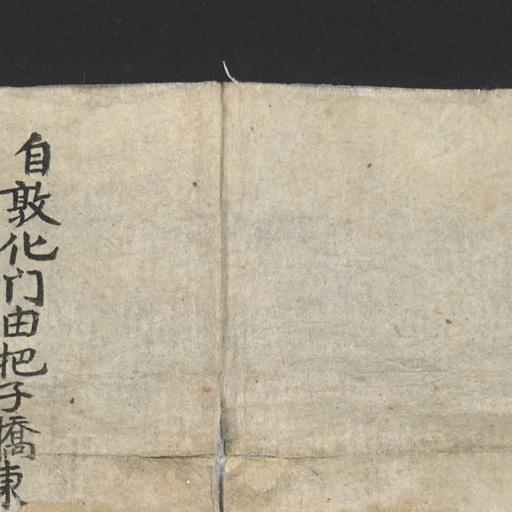 自敦化门由把子橋東